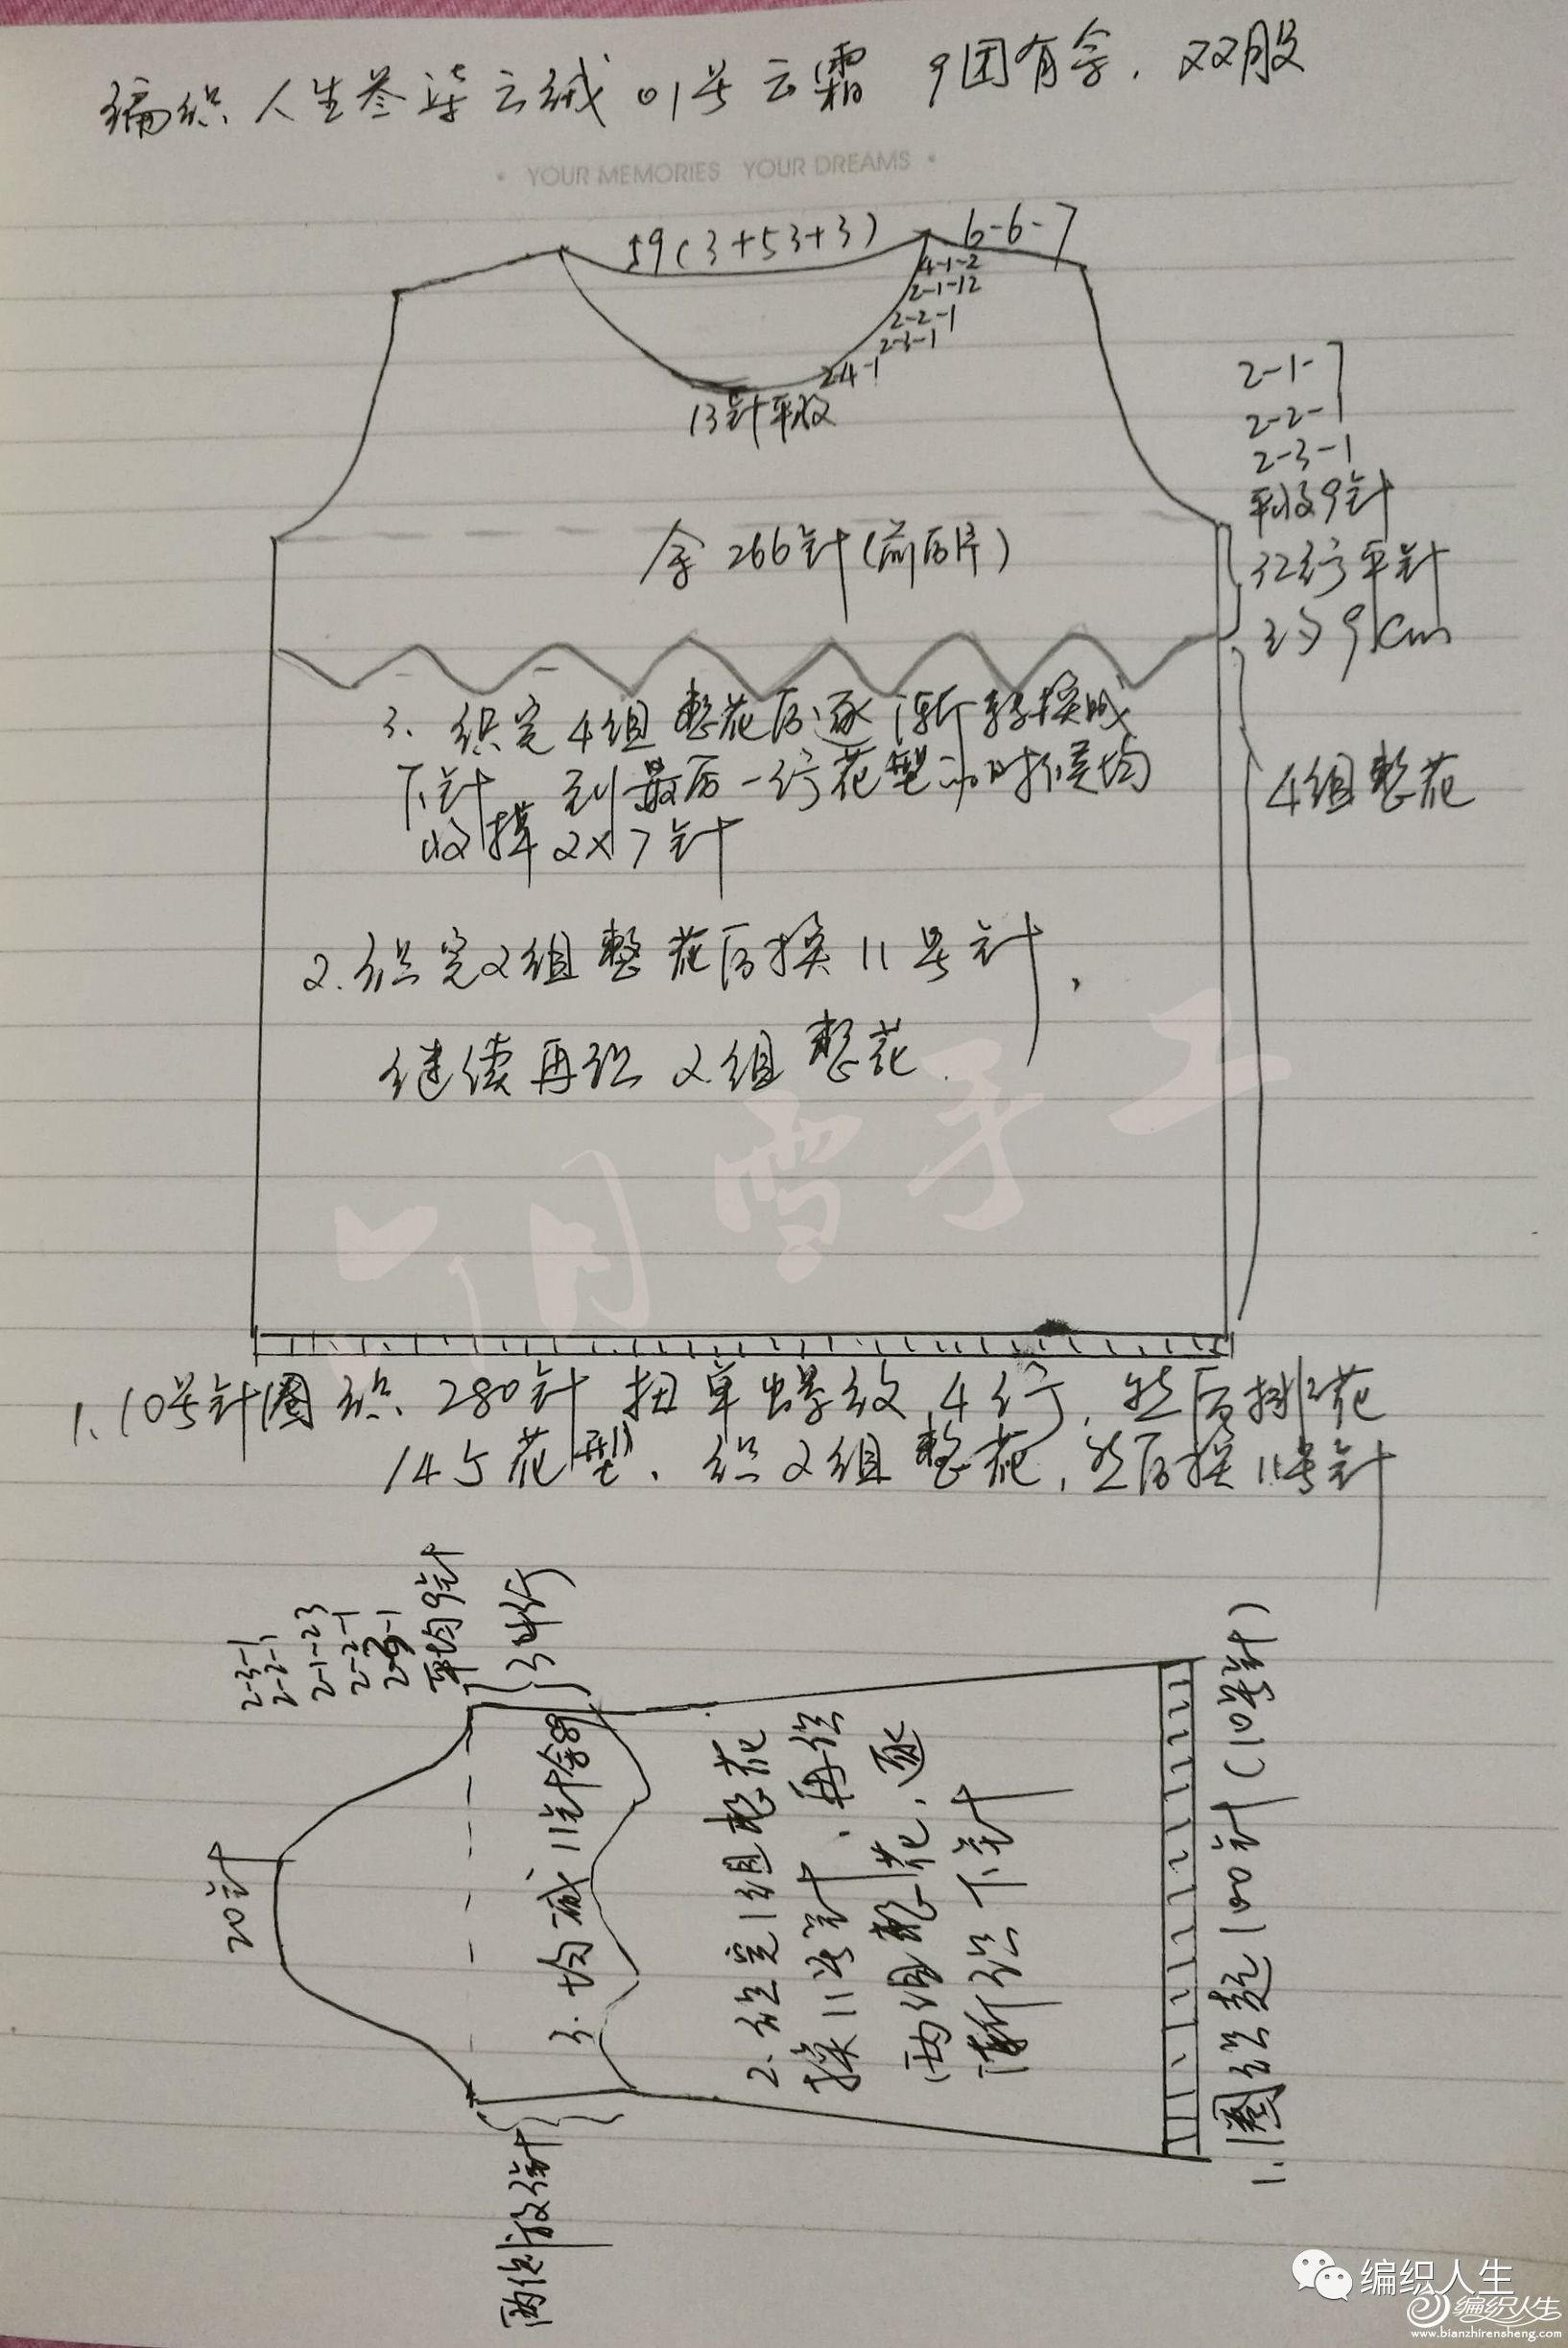 编织人生叁柒云绒01号云霜 9团有余.双股
• YOUR MEMORIES YOUR DREAMS •
59(3+53+3)
6-6-7
4-1-2
2-1-12
2-2-1
2-3-1
2-4-1
13针平收
2-1-7
2-2-1
2-3-1
平收9针
32行平针
约9cm
余266针(前后片)
3、织完4组整花后逐渐转换成
下针 到最后一行花型的时候均
收掉2x7针
4组整花
2.织完2组整花后换11号针,
继续再织2组整花.
六月雪手工
1.10号针圈织280针扭单螺纹4行.然后排花
14个花型.织2组整花,然后换11号针
2-3-1
2-2-1
2-1-23
2-2-1
2-3-1
平均9针
20针
3.均减11针余89
2.织完1组整花
换11号针.再织
两组整花.逐
渐织下针
1.圈织起100针(10号针)
编织人生
编织人生
www.bianzhirensheng.com